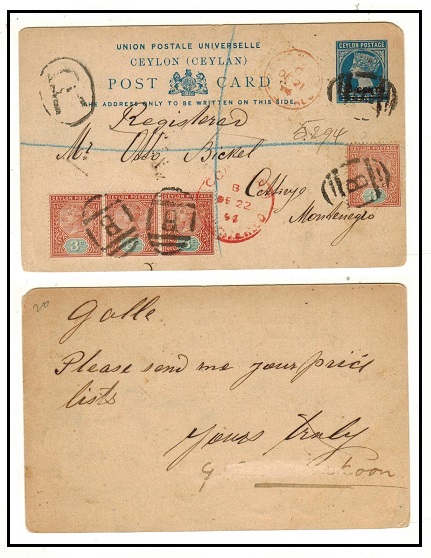 UNION POSTALE UNIVERSELLE
CEYLON (CEYLAN)
POST CARD
THE ADDRESS ONLY TO BE WRITTEN ON THIS SIDE.
CEYLON POSTAGE
Registered
Mr Otto Bickel
Cettinje
Montenegro
CEYLON POSTAGE
CEYLON POSTAGE
CEYLON POSTAGE
CEYLON POSTAGE
B
DE 22
94
B
B
B
20
Galle
Please send me your price
lists
Yours truly